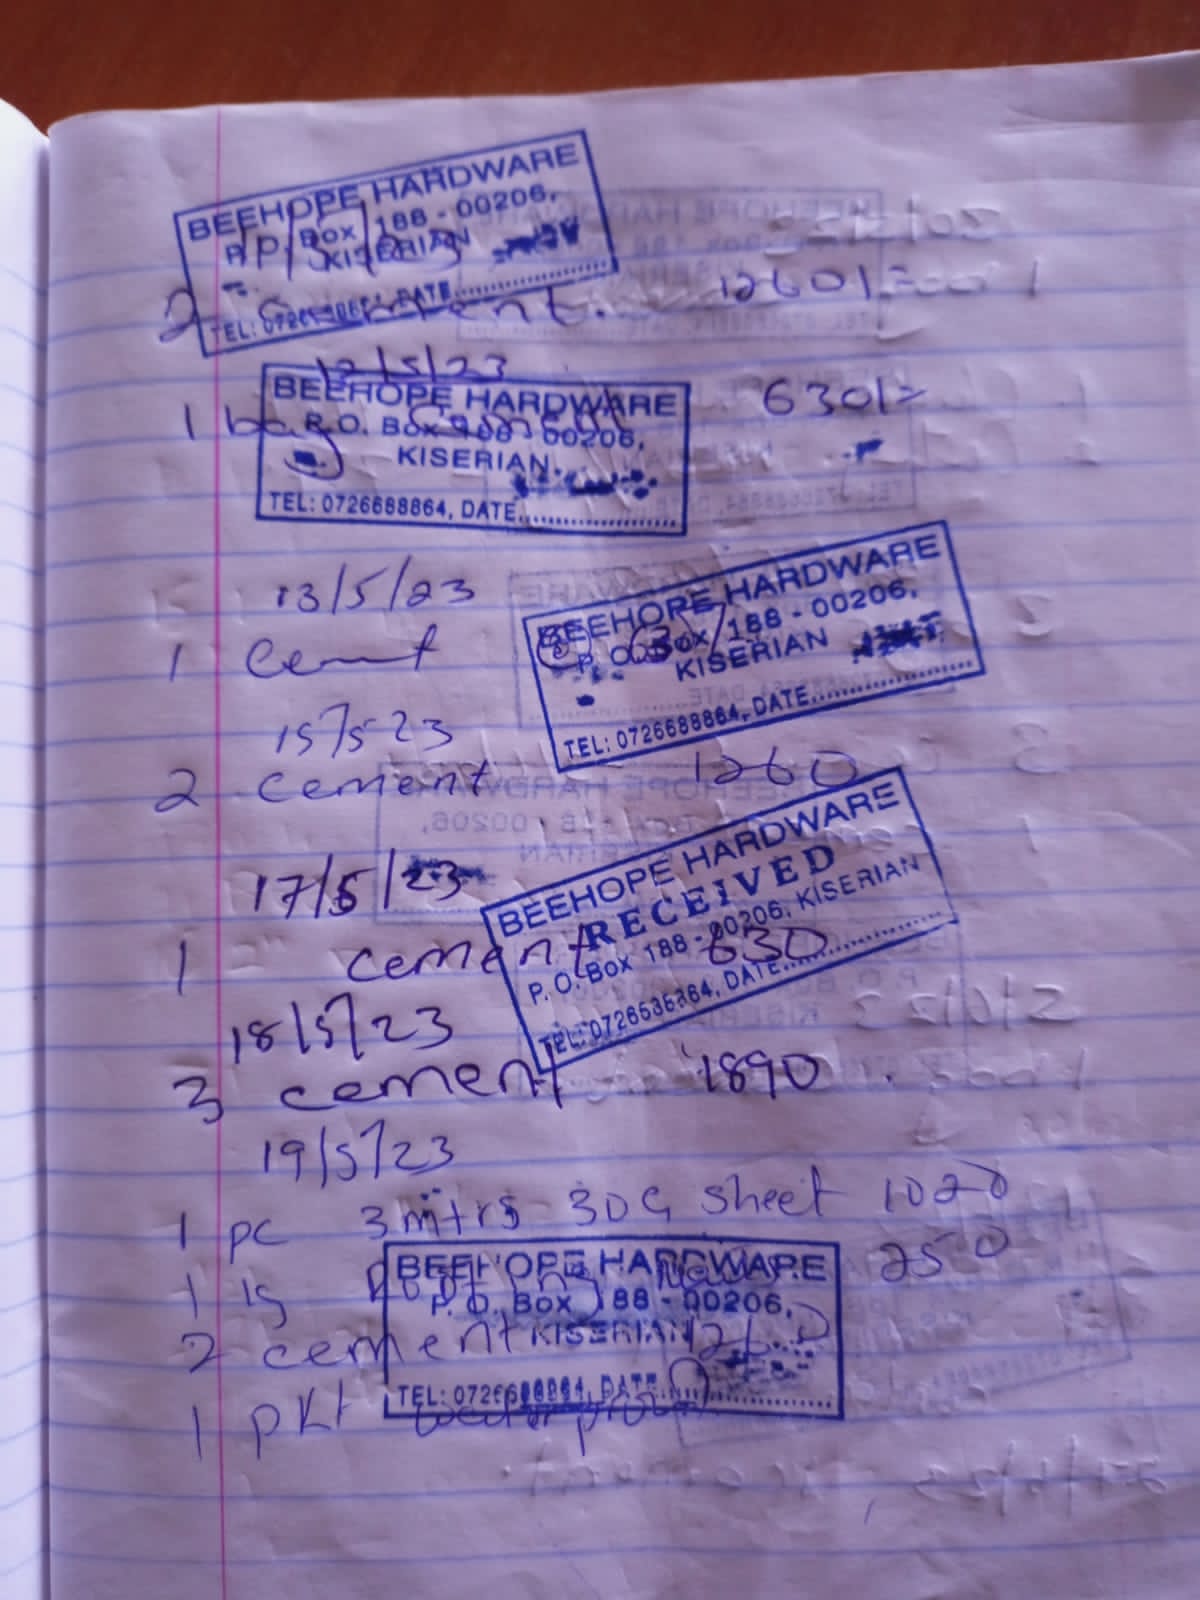 BEEHOPE HARDWARE
P. O. Box 188 - 00206,
KISERIAN
TEL: DATE
2 cement. 1260/=
12/5/23
BEEHOPE HARDWARE
P. O. Box 188 - 00206,
KISERIAN
TEL: 0726688864, DATE
1 bag cement 630/=
13/5/23
1 Cement
BEEHOPE HARDWARE
P. O. Box 188 - 00206,
KISERIAN
TEL: 0726688864, DATE
15/5 23
2 cement 1260
17/5/23
BEEHOPE HARDWARE
RECEIVED
P. O. Box 188 - 00206, KISERIAN
TEL: DATE
1 cement 630
18/5/23
3 cement 1890
19/5/23
1 pc 3 mtrs 30G sheet 1020
1 kg 250
BEEHOPE HARDWARE
P. O. Box 188 - 00206,
KISERIAN
TEL: DATE
2 cement 1260
1 pkt